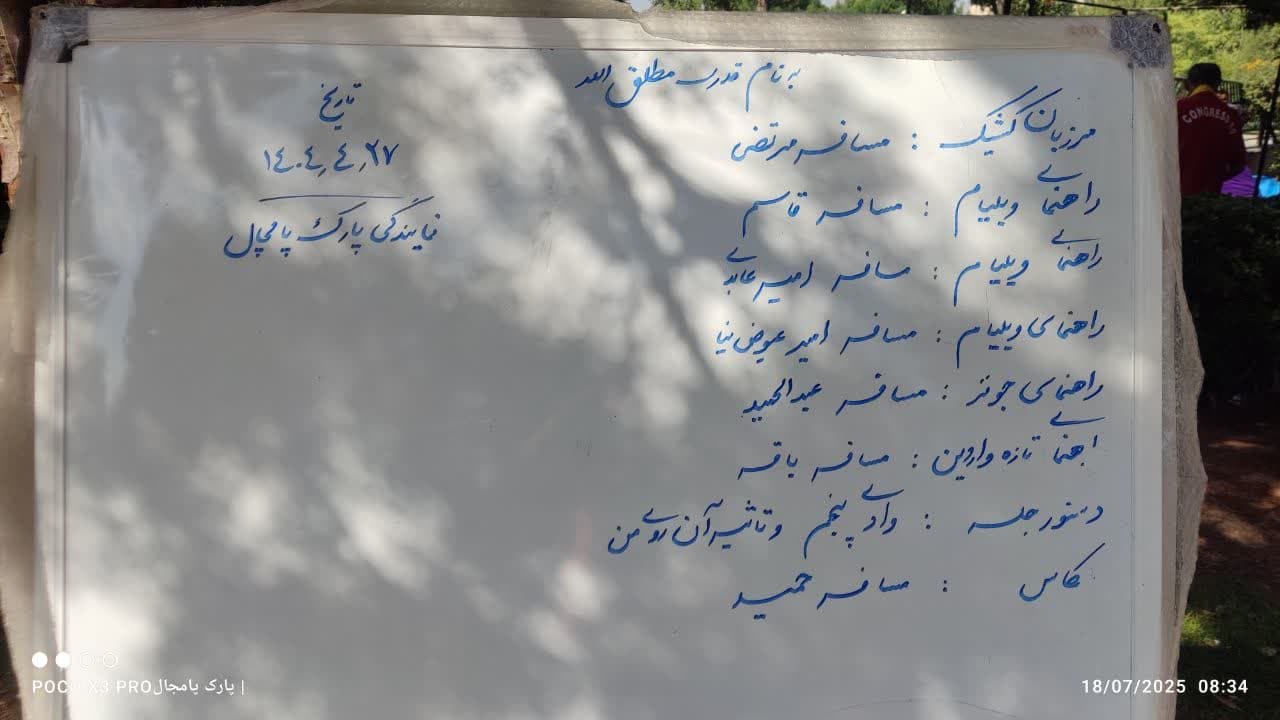 به نام قدرت مطلق الله
مرزبان کشیک : مسافر مرتضی
راهنمای ویلیام : مسافر قاسم
راهنمای ویلیام : مسافر امیر عابدی
راهنمای ویلیام : مسافر امیر عوض نیا
راهنمای جونز : مسافر عبدالحمید
راهنمای تازه واردین : مسافر باقر
دستور جلسه : وادی پنجم و تاثیر آن روی من
کاس : مسافر حمید
تاریخ
۱۴۰۴٫۴٫۲۷
نمایندگی پارک پامچال
CONGRESS
POCO X3 PRO | پارک پامچال
18/07/2025 08:34